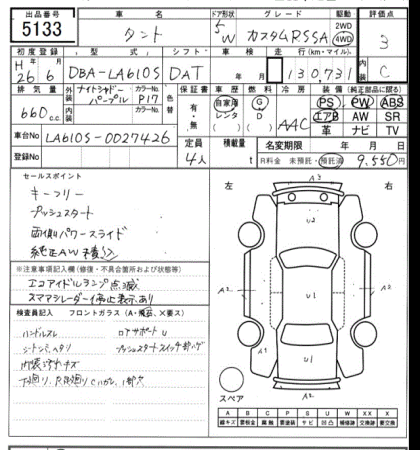 出品番号 車名 ドア形状 グレード 駆動 評価点
5133 タント 5 W カスタムRSSA 2WD 4WD 3
初度登録 型式 シフト 車検 走行(km・マイル) 内装
H 26年 6月 DBA-LA610S DAT 年 月 130,731 C
排気量 外装 ナイトシャドーパープル カラーNo. P17 色替 保証書 車歴 燃料 冷房 装備(純正部品に限る)
660cc 内装 カラーNo. 有・無 自家用 レンタ G D AAC PS PW ABS
エアB AW SR
革 ナビ TV
車台No LA610S-0027426 定員 4人 積載量 t 名変期限 年 月 日
登録No R料金 未預託・預託済 9,550円
セールスポイント
キーフリー
プッシュスタート
両側パワースライド
純正AW積込
※注意事項記入欄(修復・不具合箇所および状態等)
エコアイドルランプ点滅
スマアシレーダー停止表示あり
検査員記入 フロントガラス(A・飛石、X要ス)
ハンドルスレ ロアサポートU
シートシミ、ヘタリ プッシュスタートスイッチ部ハゲ
内装汚れキズ
下廻り、足廻りCハガレ、1部穴
左 右
A3
U2
A2 U1 A2
A1 A1
U1
A2
スペア
A B C P S U W X XX
線キズ 要板金 腐触 要塗装 サビ 凹凸 補修跡 要交換 交換跡